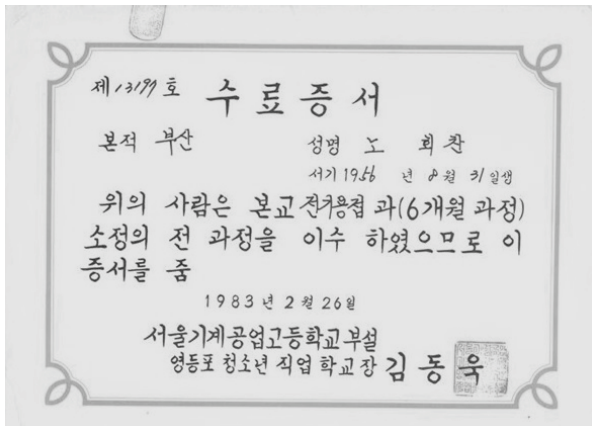 제13197호 수료증서
본적 부산 성명 노회찬
서기1956년 8월 31일생
위의 사람은 본교 전기용접과(6개월 과정)
소정의 전 과정을 이수 하였으므로 이
증서를 줌
1983년 2월 26일
서울기계공업고등학교부설
영등포 청소년 직업 학교장 김동욱